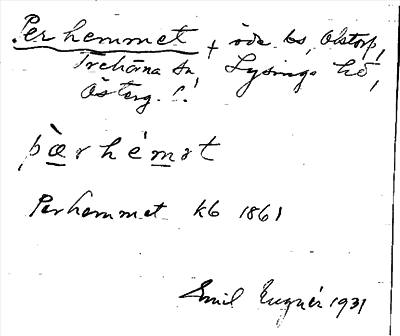 Perhemmet + öde bs, Olstorp,
Trehörna sn, Lysings hd,
Österg. l.
pæ̀rhém̲ǝt
Perhemmet kb 1861
Emil 1931